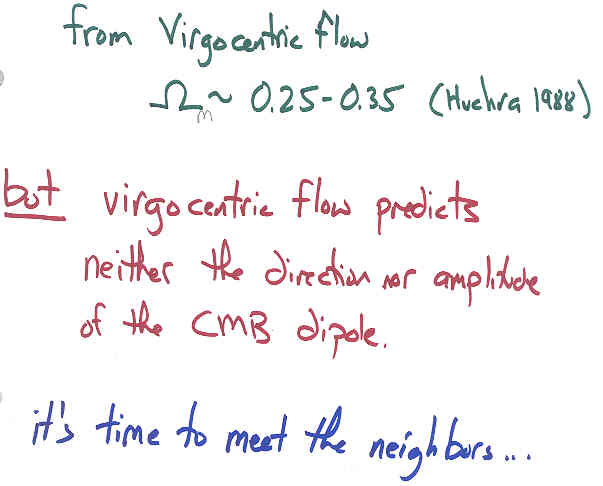 from Virgocentric Flow
Ωm ~ 0.25-0.35 (Huchra 1988)
but virgocentric flow predicts
neither the direction nor amplitude
of the CMB dipole.
it's time to meet the neighbors...